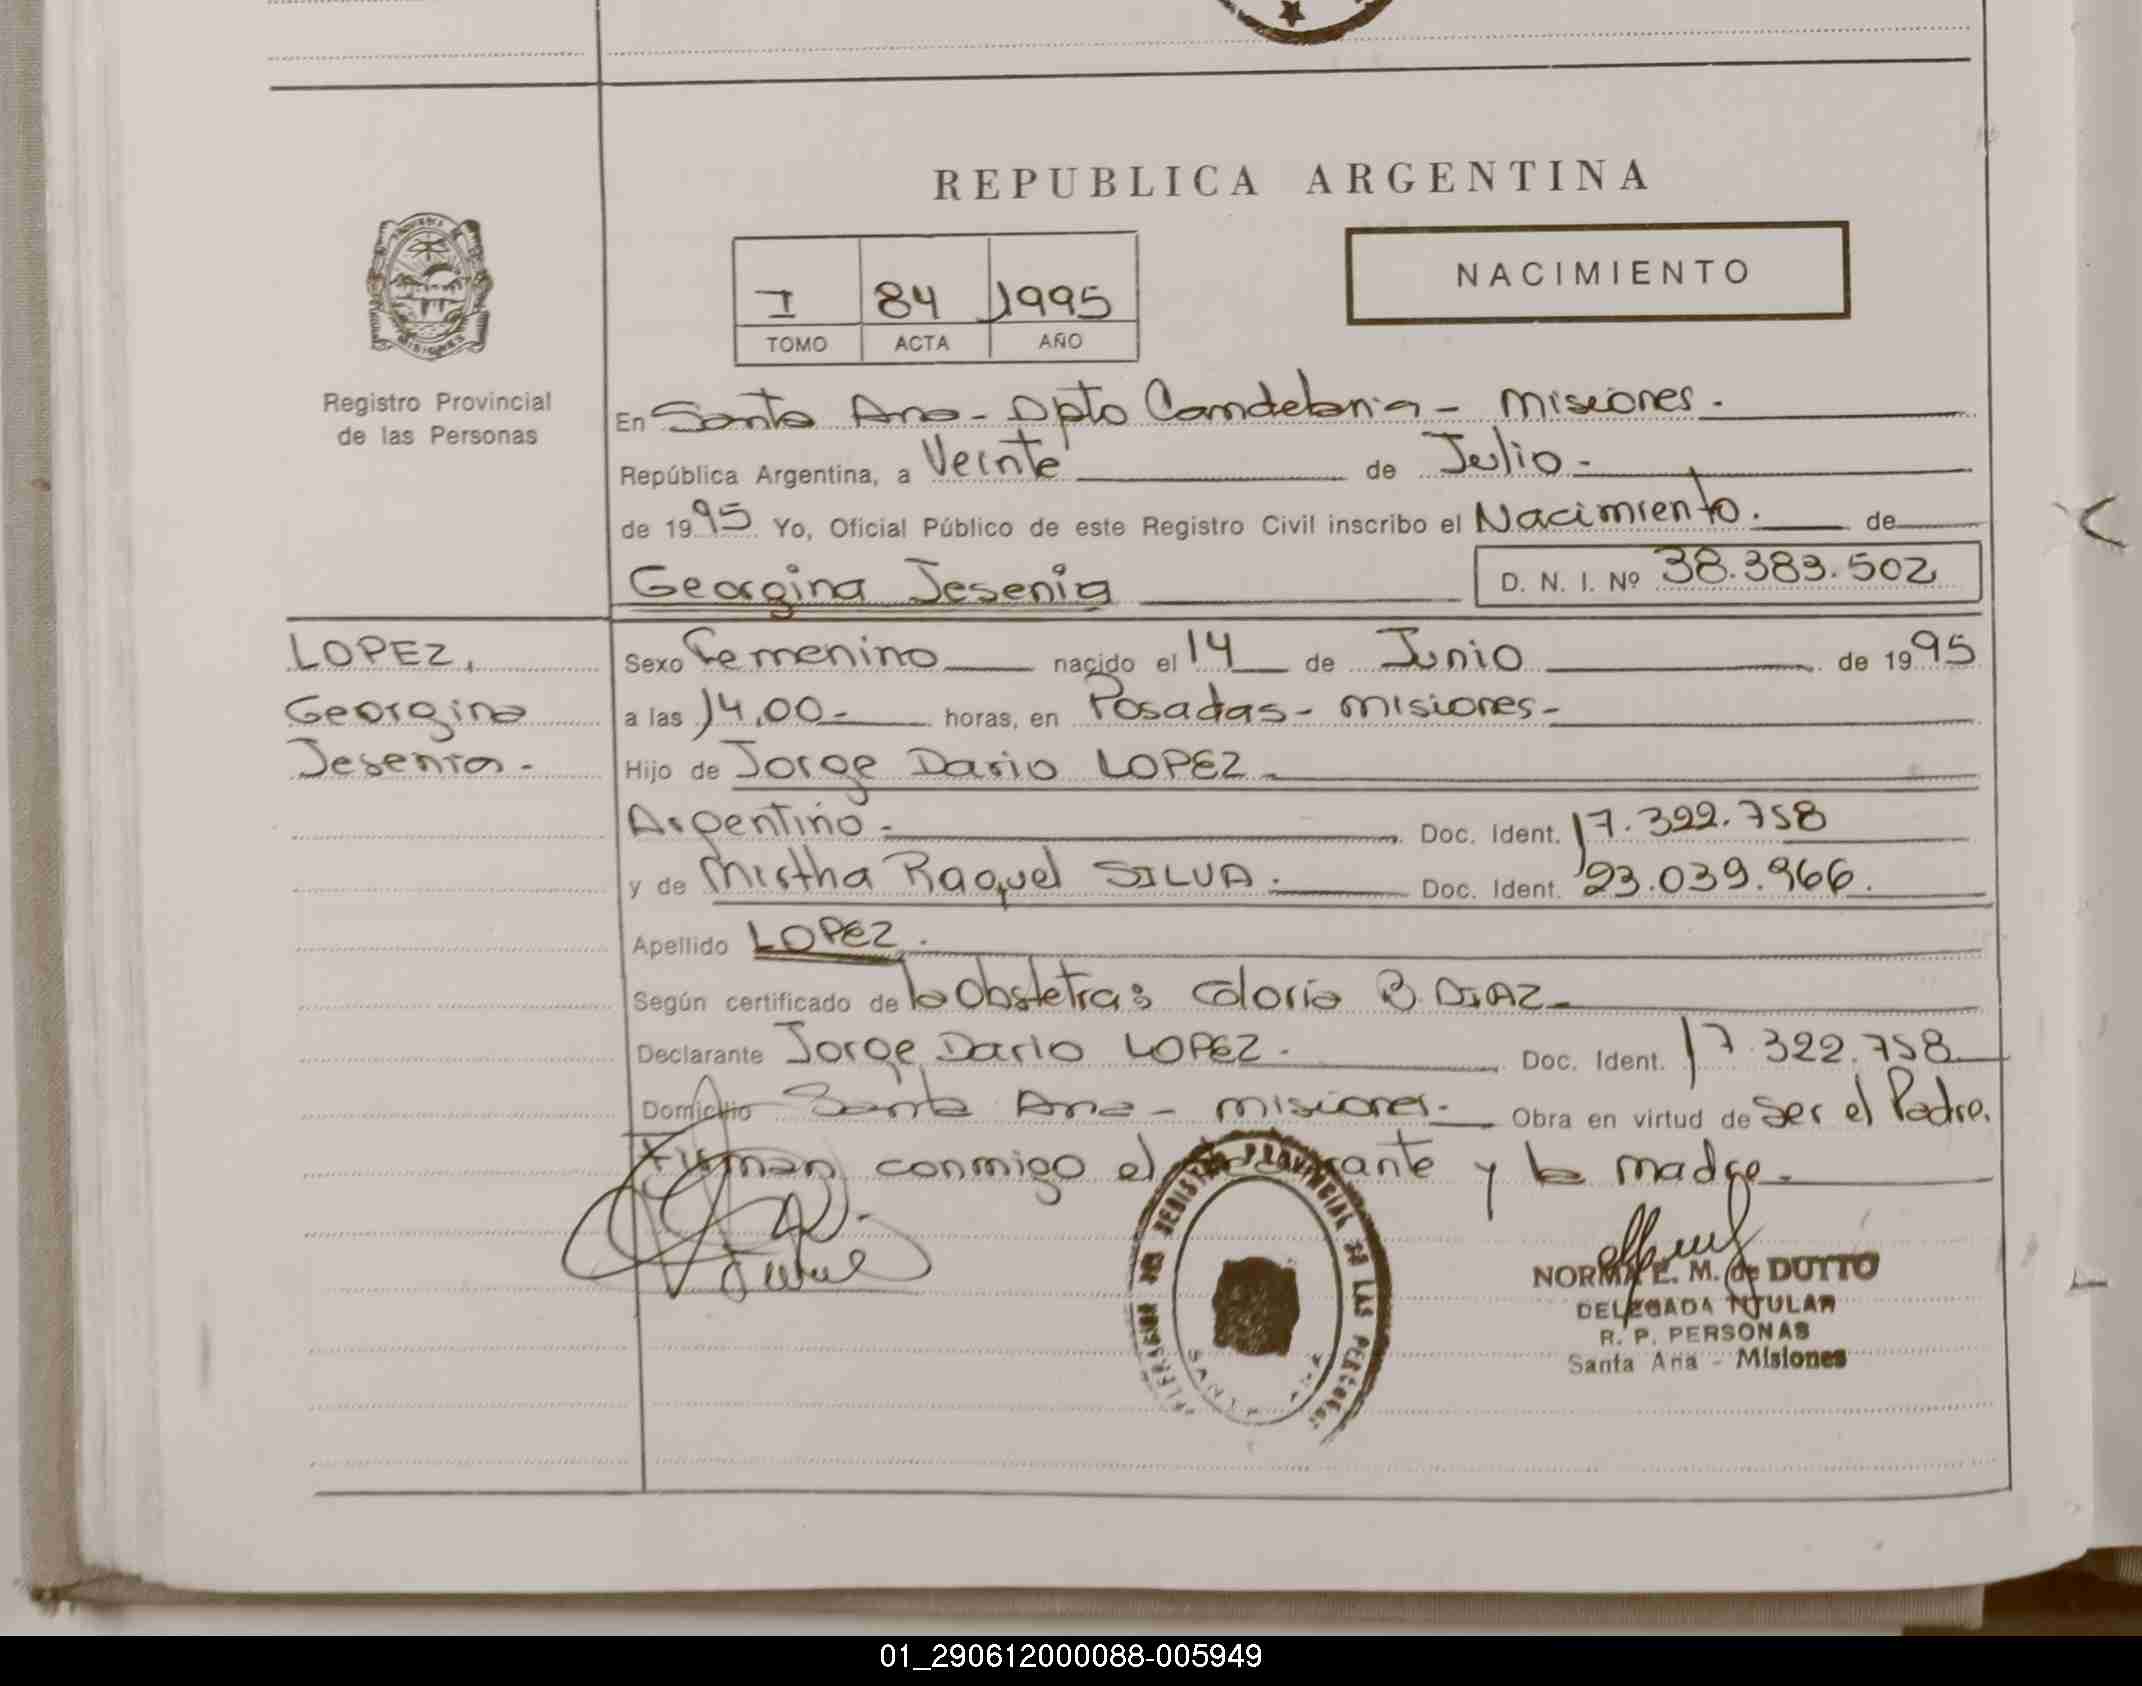 REPUBLICA ARGENTINA
NACIMIENTO
I 84 1995
TOMO ACTA AÑO
Registro Provincial
de las Personas
En Santa Ana - Dpto Candelaria - Misiones.
República Argentina, a Veinte de Julio -
de 1995 Yo, Oficial Público de este Registro Civil inscribo el Nacimiento. de
Georgina Jesenia D. N. I. Nº 38.383.502
LOPEZ,
Georgina
Jesenia -
Sexo Femenino nacido el 14 de Junio de 1995
a las 14,00 - horas, en Posadas - Misiones -
Hijo de Jorge Dario LOPEZ
Argentino - Doc. Ident. 17.322.758
y de Mirtha Raquel SILVA. Doc. Ident. 23.039.966.
Apellido LOPEZ.
Según certificado de la Obstetras B. DIAZ
Declarante Jorge Dario LOPEZ. Doc. Ident. 17.322.758
Domicilio Santa Ana - Misiones. Obra en virtud de ser el Padre.
Firman conmigo el y la madre
NORMA E. M. de DUTTO
DELEGADA TITULAR
R. P. PERSONAS
Santa Ana - Misiones
REGISTRO PROVINCIAL DE LAS PERSONAS
01_290612000088-005949